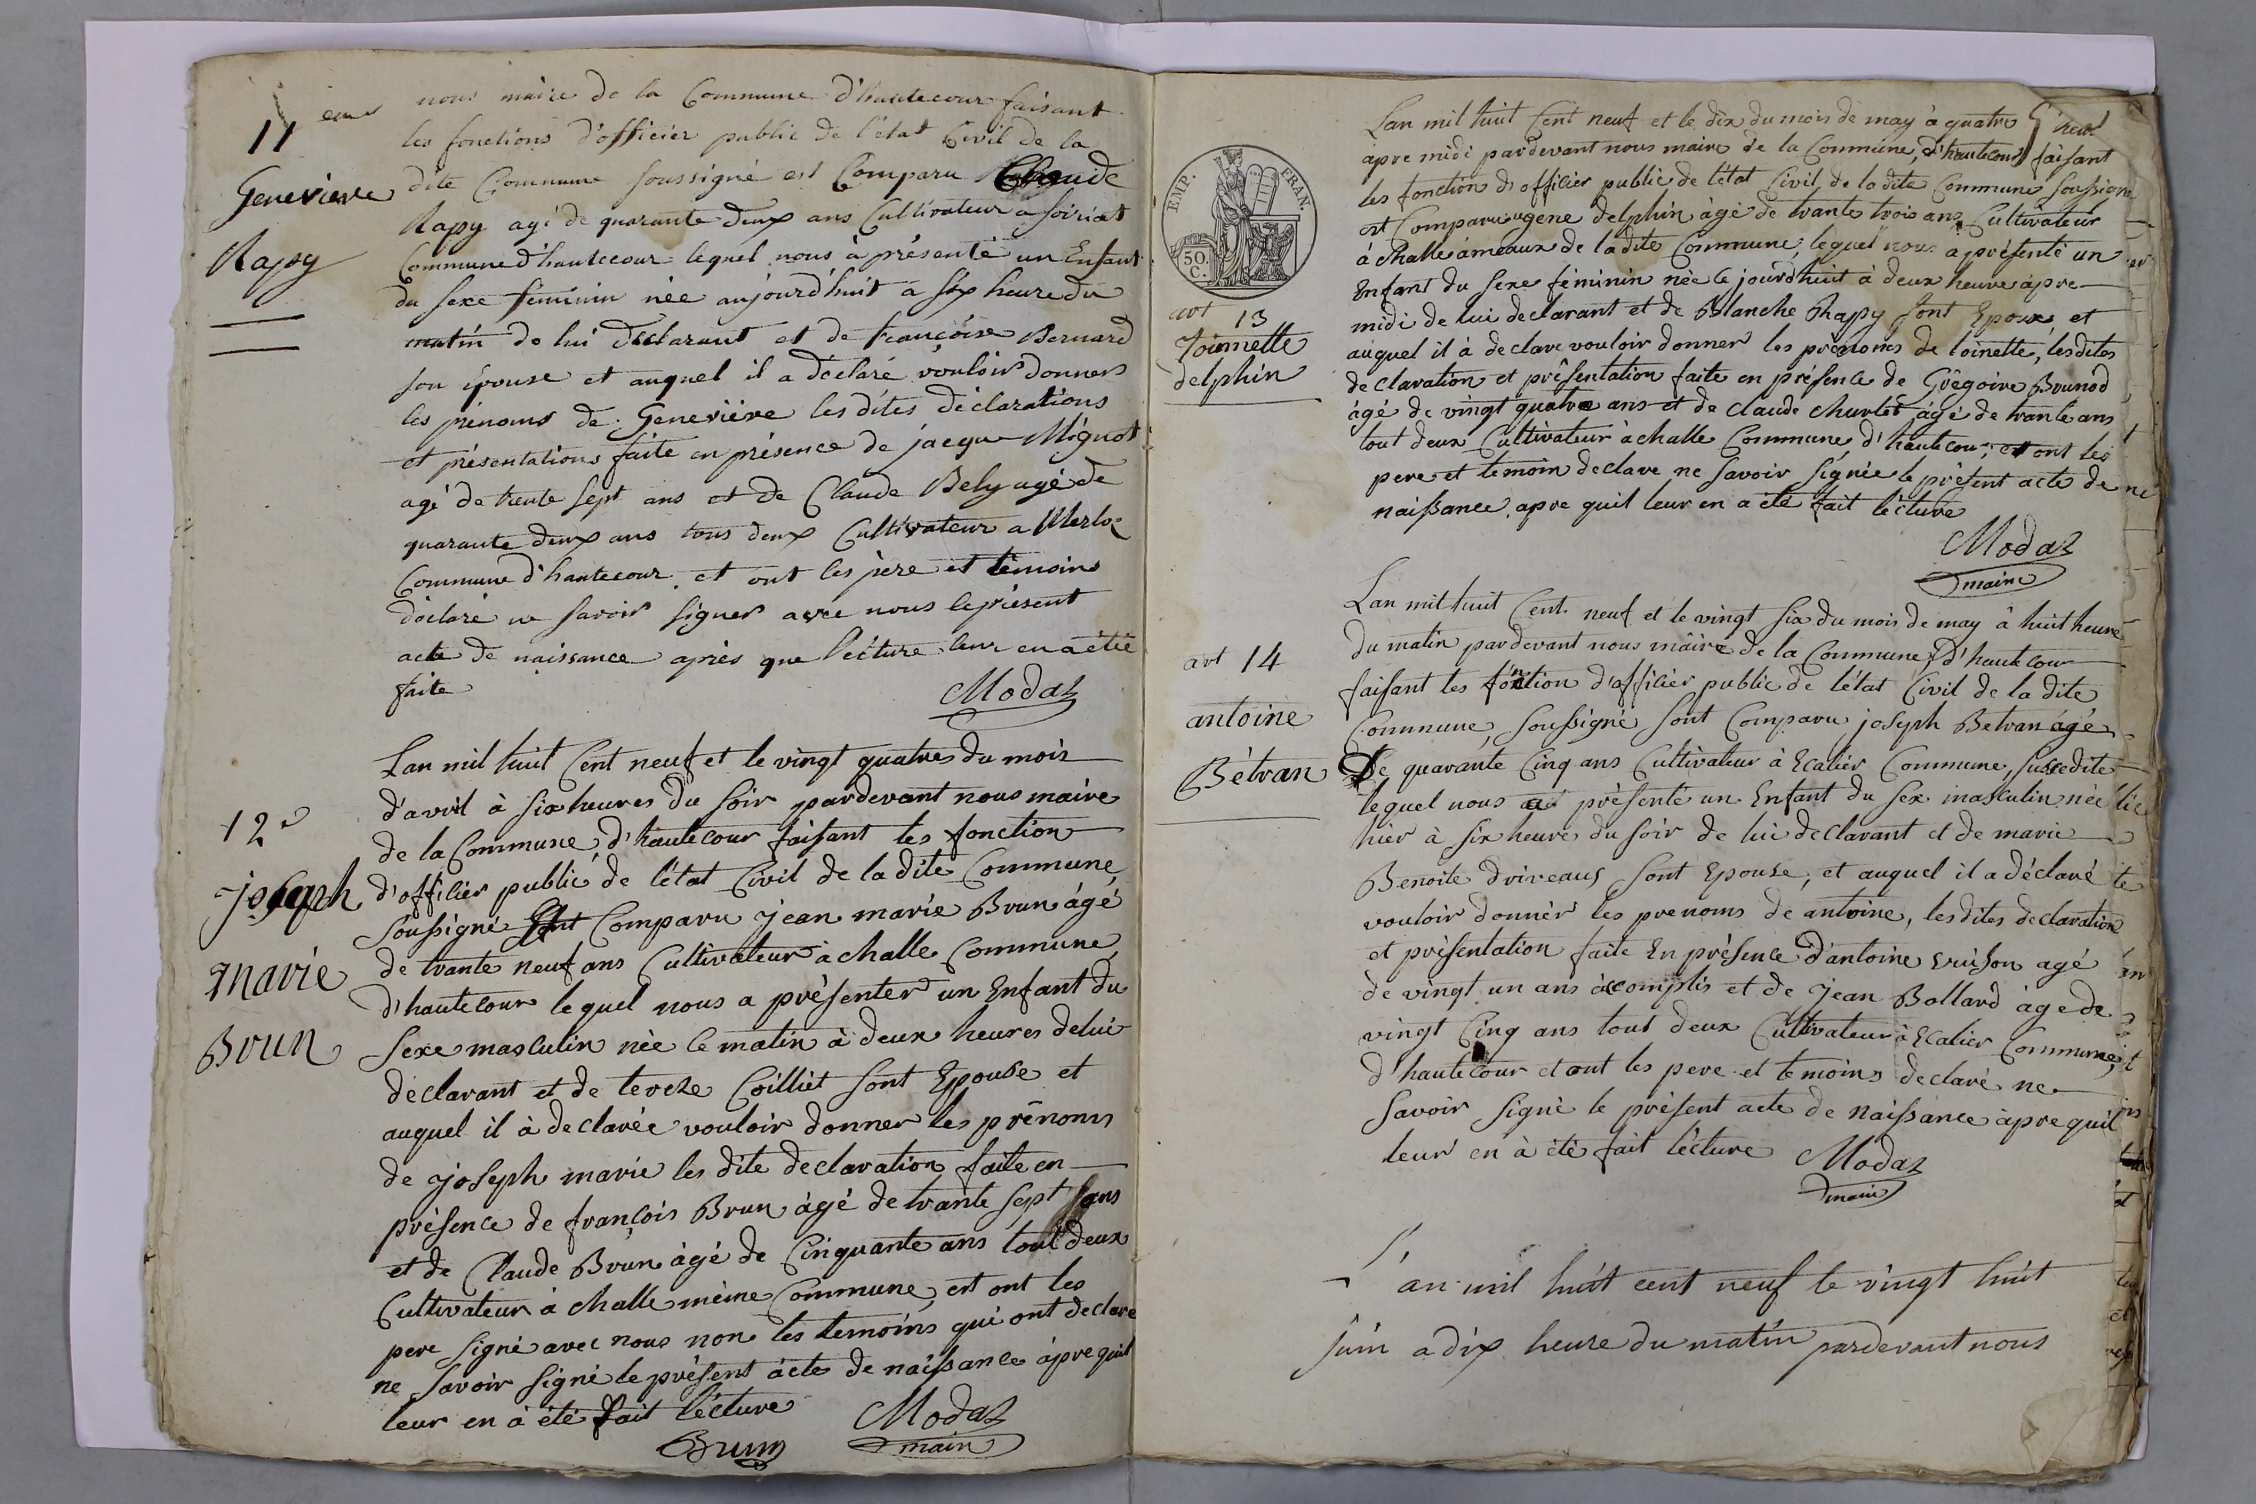 11 eme
Genevieve
Rapy
nous maire de la Commune d'hautecour faisant
les fonctions d'officier public de l'état Civil de la
dite Commune soussigné est Comparu Claude
Rapy agé de quarante deux ans Cultivateur a soiriat
Commune d'hautecour lequel nous à présenté un Enfant
du sexe feminin née aujourd'huit a six heure du
matin de lui déclarant et de françoise Bernard
son épouse et auquel il a déclaré vouloir donner
les prénoms de Geneviève les dites déclarations
et présentations faite en présence de jacque Mignot
agé de trente sept ans et de Claude Bely agé de
quarante deux ans tous deux Cultivateur a Merloz
Commune d'hautecour et ont les père et témoins
déclaré ne savoir signer avec nous le présent
acte de naissance après que lécture leur en a étée
faite
Modaz
12e
joseph
marie
Brun
Lan mil huit Cent neuf et le vingt quatres du mois
d'avril à six heures du soir pardevant nous maire
de la Commune d'hautecour faisant les fonction
d'officier public de l'état Civil de la dite Commune
soussigné est Comparu jean marie Brun âgé
de trante neuf ans Cultivateur à challe Commune
d'hautecour lequel nous a présenter un Enfant du
sexe masculin née ce matin à deux heures de lui
declarant et de tereze Coilliet sont Epouse et
auquel il à declarée vouloir donner les prénoms
de joseph marie les dite declaration faite en
présence de françois Brun àgé de trante sept ans
et de Claude Brun àgé de Cinquante ans tout deux
Cultivateur à challe mème Commune, et ont les
pere signé avec nous non les temoins qui ont declare
ne savoir signé le présent àcte de naissance àpre quil
leur en à été fait lécture
Brun
Modaz
maire
EMP. FRAN.
50.
C.
art 13
Toinnette
delphin
Lan mil huit Cent neuf et le dix du mois de may à quatre heure
apre midi pardevant nous maire de la Commune, d'hautecour faisant
les fonction d'officier public de l'état Civil de la dite Commune soussigné
est Comparu ugene delphin àgé de trante trois ans Cultivateur
à challe ameaux de la dite Commune, lequel nous a présenté un
Enfant du sexe féminin née ce jourd'huit à deux heure àpre
midi de lui declarant et de Blanche Rapy sont Epouse et
auquel il à declare vouloir donner les prénoms de toinette, les dites
declaration et présentation faite en présence de Grégoire Brunod
âgé de vingt quatre ans et de claude churlet agé de trante ans
tout deux Cultivateur à challe Commune, d'hautecour, et ont les
pere et temoin declare ne savoir signée le présent acte de
naissance apre quil leur en a été fait lécture
Modaz
maire
art 14
antoine
Bétran
Lan mil huit Cent neuf et le vingt six du mois de may à huit heure
du matin pardevant nous maire de la Commune, d'hautecour
faisant les fonction d'officier public de létat Civil de la dite
Commune, soussigné sont Comparu joseph Betran agé
De quarante Cinq ans Cultivateur à Ecalier Commune, susdite
lequel nous a présenté un Enfant du sex masculin née
hier à six heure du soir de lui declarant et de marie
Benoite driveaus sont Epouse, et auquel il a déclaré
vouloir donner les prenoms de antoine, les dites declaration
et présentation faite En présence d'antoine vuison agé
de vingt un ans àccomplis et de jean Bollard àge de
vingt Cinq ans tout deux Cultivateur à Ecalier Commune
d'hautecour et ont les pere et temoins declaré ne
savoir signé le présent acte de naissance àpre quil
leur en à été fait lécture
Modaz
maire
L'an mil huit cent neuf le vingt huit
juin a dix heure du matin pardevant nous